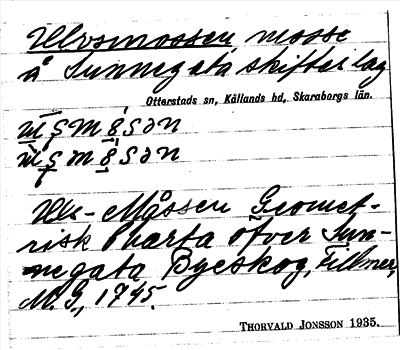 Ulvsmossen, mosse
å Sunnegata skifteslag
Otterstads sn, Kållands hd, Skaraborgs län.
Ulf-Måssen Geomet-
risk Charta öfver Sun-
negata Byeskog, Fillmer,
M. G., 1745.
THORVALD JONSSON 1935.